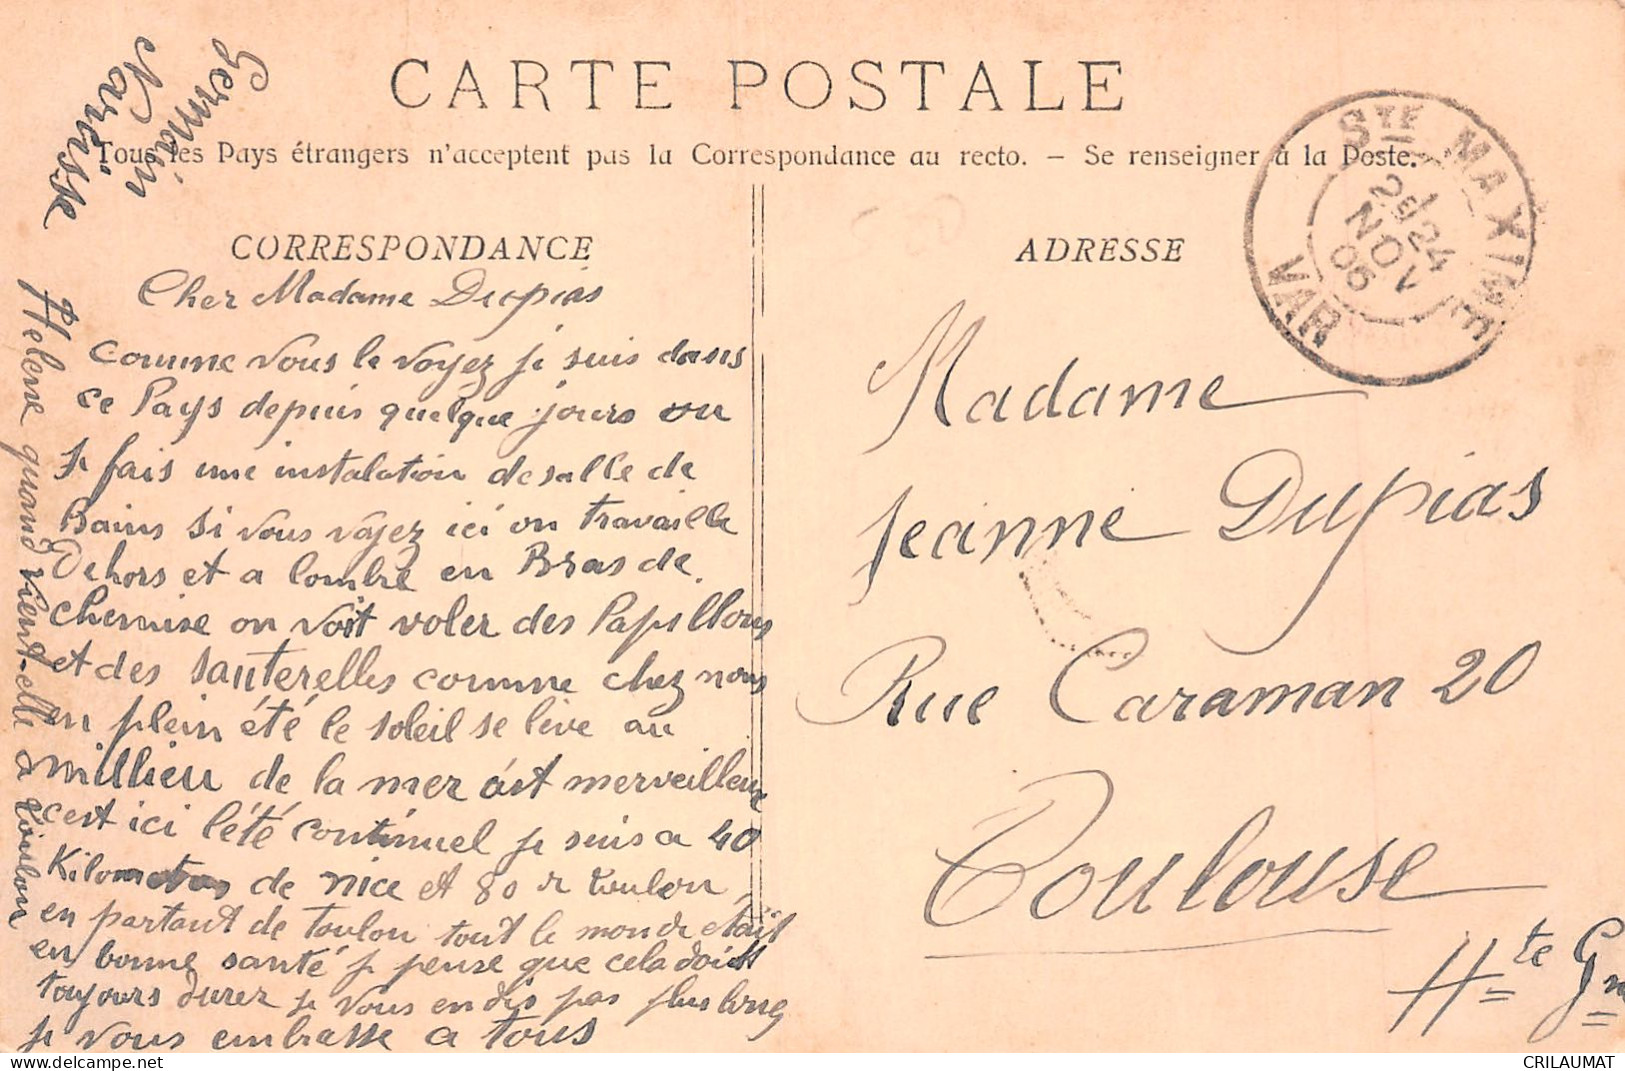 CARTE POSTALE
Tous les Pays étrangers n'acceptent pas la Correspondance au recto. – Se renseigner à la Poste.
CORRESPONDANCE
Cher Madame Dupias
Comme vous le voyez je suis dans
ce Pays depuis quelque jours ou
je fais une instalation de salle de
Bains si vous voyez ici on travaille
Dehors et a lombre en Bras de
chemise on voit voler des Papillons
et des sauterelles comme chez nous
en plein été le soleil se lève au
millieu de la mer est merveilleux
cest ici l'été continuel je suis a 40
Kilometres de nice et 80 de toulon
en partant de toulon tout le monde etait
en bonne santé je pense que cela doit
toujours durer je vous en dis pas plus long
je vous embrasse a tous
Germain
Narèisse
Helene quand vient-elle a toulon
ADRESSE
Madame
Jeanne Dupias
Rue Caraman 20
Toulouse
Hte Gne
STE MAXIME
24
NOV
05
VAR
CRILAUMAT